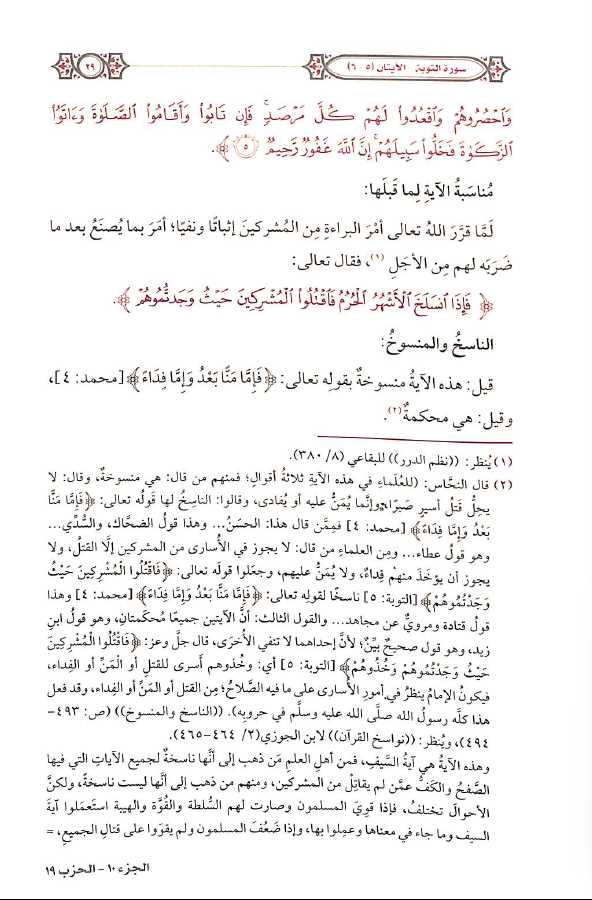 سورة التوبة الآيتان (٥-٦)
٢٩
وَاحْصُرُوهُمْ وَاقْعُدُوا لَهُمْ كُلَّ مَرْصَدٍ ۚ فَإِن تَابُوا وَأَقَامُوا الصَّلَوٰةَ وَءَاتَوُا
الزَّكَوٰةَ فَخَلُّوا سَبِيلَهُمْ ۚ إِنَّ اللَّهَ غَفُورٌ رَّحِيمٌ ٥ ﴾.
مُناسَبةُ الآيةِ لِما قبلَها:
لَمَّا قرَّرَ اللهُ تعالى أمْرَ البراءةِ مِن المُشركينَ إثباتًا ونفيًا؛ أمَرَ بما يُصنَعُ بعد ما
ضرَبَه لهم مِن الأجَلِ (١)، فقال تعالى:
﴿ فَإِذَا انسَلَخَ الْأَشْهُرُ الْحُرُمُ فَاقْتُلُوا الْمُشْرِكِينَ حَيْثُ وَجَدتُّمُوهُمْ ﴾.
الناسخُ والمنسوخُ:
قيل: هذه الآيةُ منسوخةٌ بقولِه تعالى: ﴿فَإِمَّا مَنًّا بَعْدُ وَإِمَّا فِدَاءً﴾ [محمد: ٤]،
وقيل: هي محكمةٌ (٢).
(١) يُنظر: ((نظم الدرر)) للبقاعي (٨/ ٣٨٠).
(٢) قال النحَّاس: (للعُلَماءِ في هذه الآيةِ ثلاثةُ أقوالٍ؛ فمنهم من قال: هي منسوخةٌ، وقال: لا
يحِلُّ قَتلُ أسيرٍ صَبرًا، وإنَّما يُمَنُّ عليه أو يُفادى، وقالوا: الناسخُ لها قَولُه تعالى: ﴿فَإِمَّا مَنًّا
بَعْدُ وَإِمَّا فِدَاءً﴾ [محمد: ٤] فمِمَّن قال هذا: الحسَنُ... وهذا قولُ الضحَّاك، والسُّدِّي...
وهو قولُ عطاء... ومِن العلماءِ من قال: لا يجوز في الأُسارى من المشركين إلَّا القتلُ، ولا
يجوز أن يؤخَذَ منهم فِداءٌ، ولا يُمَنُّ عليهم، وجعلوا قولَه تعالى: ﴿فَاقْتُلُوا الْمُشْرِكِينَ حَيْثُ
وَجَدْتُمُوهُمْ﴾ [التوبة: ٥] ناسخًا لقولِه تعالى: ﴿فَإِمَّا مَنًّا بَعْدُ وَإِمَّا فِدَاءً﴾ [محمد: ٤] وهذا
قولُ قتادة ومرويٌّ عن مجاهد... والقول الثالث: أنَّ الآيتين جميعًا مُحكمتانِ، وهو قولُ ابنِ
زيد، وهو قول صحيحٌ بيِّنٌ؛ لأنَّ إحداهما لا تنفي الأخرَى، قال جلَّ وعز: ﴿فَاقْتُلُوا الْمُشْرِكِينَ
حَيْثُ وَجَدْتُمُوهُمْ وَخُذُوهُمْ﴾ [التوبة: ٥] أي: وخُذوهم أسرى للقتلِ أو المَنِّ أو الفِداء،
فيكونُ الإمامُ ينظُرُ في أمورِ الأُسارى على ما فيه الصَّلاحُ؛ مِن القتل أو المَنِّ أو الفِداء، وقد فعل
هذا كلَّه رسول الله صلَّى الله عليه وسلَّم في حروبِه). ((الناسخ والمنسوخ)) (ص: ٤٩٣-
٤٩٤)، ويُنظر: ((نواسخ القرآن)) لابن الجوزي (٢/ ٤٦٤-٤٦٥).
وهذه الآيةُ هي آيةُ السَّيفِ، فمن أهلِ العلمِ مَن ذهب إلى أنَّها ناسخةٌ لجميعِ الآياتِ التي فيها
الصَّفحُ والكَفُّ عمَّن لم يقاتِلْ من المشركين، ومنهم من ذهب إلى أنَّها ليست ناسخةً، ولكنَّ
الأحوالَ تختلف، فإذا قوِيَ المسلمون وصارت لهم السُّلطة والقُوَّة والهيبة استَعمَلوا آيةَ
السيف وما جاء في معناها وعمِلوا بها، وإذا ضَعُفَ المسلمون ولم يقوَوا على قتالِ الجميعِ، =
الجزء ١٠ - الحزب ١٩